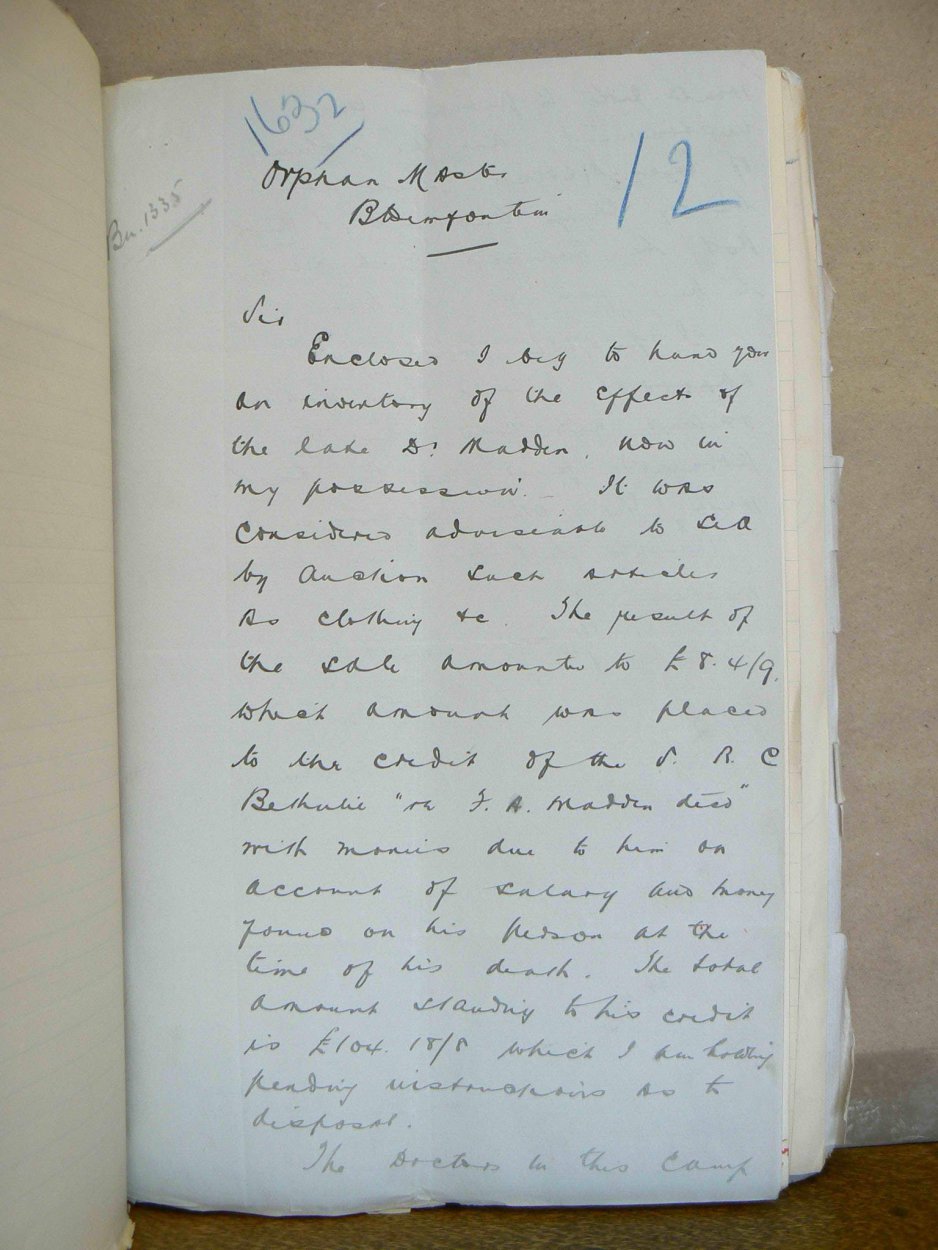 1632
12
Bu. 1335
Orphan Master
Bloemfontein
Sir
Enclosed I beg to hand you
an inventory of the effects of
the late Dr. Madden, now in
my possession. – It was
considered adviseable to sell
by Auction such articles
as clothing &c. The result of
the sale amounted to £8.4/9.
which amount was placed
to the credit of the S. R. C
Bethulie "re F. A. Madden decd"
with monies due to him on
account of salary and money
found on his person at the
time of his death. The total
amount standing to his credit
is £104. 18/8 which I am holding
pending instructions as to
disposal.
The Doctors in this Camp